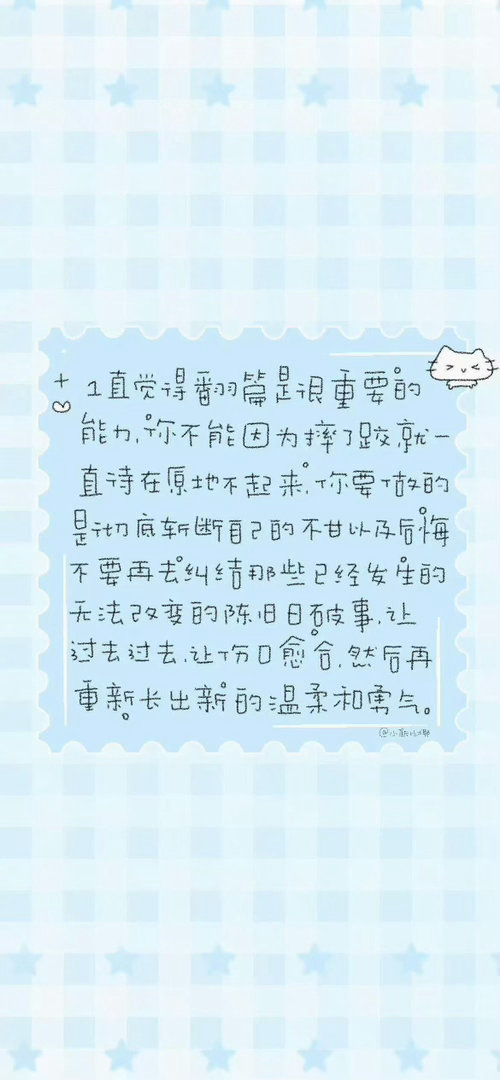 1直觉得翻篇是很重要的
能力,你不能因为摔了跤就一
直待在原地不起来,你要做的
是彻底斩断自己的不甘以及后悔
不要再去纠结那些已经发生的
无法改变的陈旧日破事,让
过去过去,让伤口愈合,然后再
重新长出新的温柔和勇气。